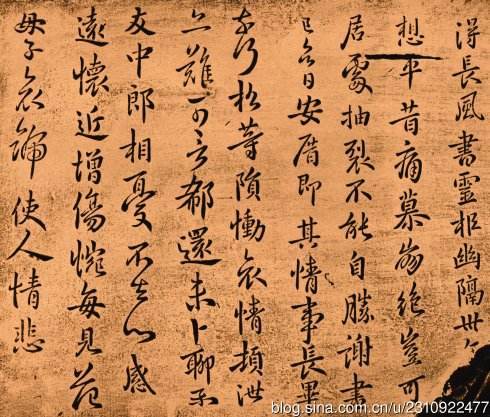 得長風書靈柩幽隔卅
想平昔痛慕崩絕豈可
居處抽裂不能自勝謝書
已日安厝即其情事長畢
松等隕慟哀情頓泄
難可言郗還未卜聊
友中郎相憂不去心感
遠懷近增傷惋每見范
母子哀號使人情悲
blog.sina.com.cn/u/2310922477